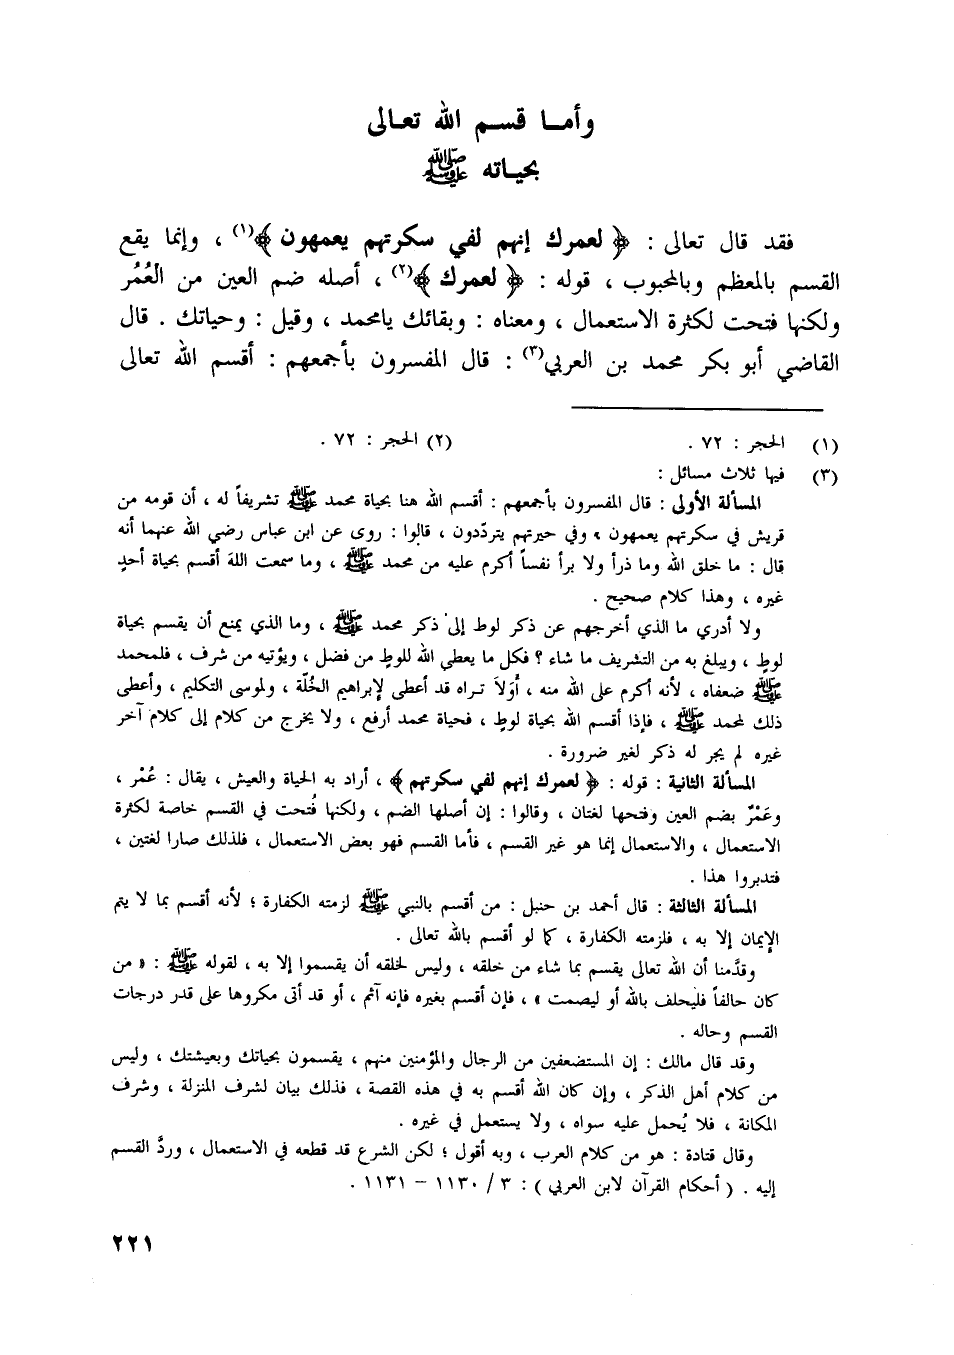 وأما قسم الله تعالى
بحياته ﷺ
فقد قال تعالى : ﴿ لعمرك إنهم لفي سكرتهم يعمهون ﴾(١) ، وإنما يقع
القسم بالمعظم وبالمحبوب ، قوله : ﴿ لعمرك ﴾(٢) ، أصله ضم العين من الْعُمُر
ولكنها فتحت لكثرة الاستعمال ، ومعناه : وبقائك يامحمد ، وقيل : وحياتك . قال
القاضي أبو بكر محمد بن العربي(٣) : قال المفسرون بأجمعهم : أقسم الله تعالى
(١) الحجر : ٧٢ . (٢) الحجر : ٧٢ .
(٣) فيها ثلاث مسائل :
المسألة الأولى : قال المفسرون بأجمعهم : أقسم الله هنا بحياة محمد ﷺ تشريفاً له ، أن قومه من
قريش في سكرتهم يعمهون » وفي حيرتهم يتردّدون ، قالوا : روى عن ابن عباس رضي الله عنهما أنه
قال : ما خلق الله وما ذرأ ولا برأ نفساً أكرم عليه من محمد ﷺ ، وما سمعت اللهَ أقسم بحياة أحدٍ
غيره ، وهذا كلام صحيح .
ولا أدري ما الذي أخرجهم عن ذكر لوط إلى ذكر محمد ﷺ ، وما الذي يمنع أن يقسم بحياة
لوطٍ ، ويبلغ به من التشريف ما شاء ؟ فكل ما يعطي الله للوطٍ من فضل ، ويؤتيه من شرف ، فلمحمد
ﷺ ضعفاه ، لأنه أكرم على الله منه ، أَوَلاَ تراه قد أعطى لإبراهيم الخُلّة ، ولموسى التكليم ، وأعطى
ذلك لمحمد ﷺ ، فإذا أقسم الله بحياة لوطٍ ، فحياة محمد أرفع ، ولا يخرج من كلام إلى كلام آخر
غيره لم يجر له ذكر لغير ضرورة .
المسألة الثانية : قوله : ﴿ لعمرك إنهم لفي سكرتهم ﴾ ، أراد به الحياة والعيش ، يقال : عُمْر ،
وعَمْرٌ بضم العين وفتحها لغتان ، وقالوا : إن أصلها الضم ، ولكنها فُتحت في القسم خاصة لكثرة
الاستعمال ، والاستعمال إنما هو غير القسم ، فأما القسم فهو بعض الاستعمال ، فلذلك صارا لغتين ،
فتدبروا هذا .
المسألة الثالثة : قال أحمد بن حنبل : من أقسم بالنبي ﷺ لزمته الكفارة ؛ لأنه أقسم بما لا يتم
الإيمان إلا به ، فلزمته الكفارة ، كما لو أقسم بالله تعالى .
وقدَّمنا أن الله تعالى يقسم بما شاء من خلقه ، وليس لخلقه أن يقسموا إلا به ، لقوله ﷺ : « من
كان حالفاً فليحلف بالله أو ليصمت » ، فإن أقسم بغيره فإنه آثم ، أو قد أتى مكروها على قدر درجات
القسم وحاله .
وقد قال مالك : إن المستضعفين من الرجال والمؤمنين منهم ، يقسمون بحياتك وبعيشتك ، وليس
من كلام أهل الذكر ، وإن كان الله أقسم به في هذه القصة ، فذلك بيان لشرف المنزلة ، وشرف
المكانة ، فلا يُحمل عليه سواه ، ولا يستعمل في غيره .
وقال قتادة : هو من كلام العرب ، وبه أقول ؛ لكن الشرع قد قطعه في الاستعمال ، وردَّ القسم
إليه . ( أحكام القرآن لابن العربي ) : ٣ / ١١٣٠ – ١١٣١ .
٢٢١